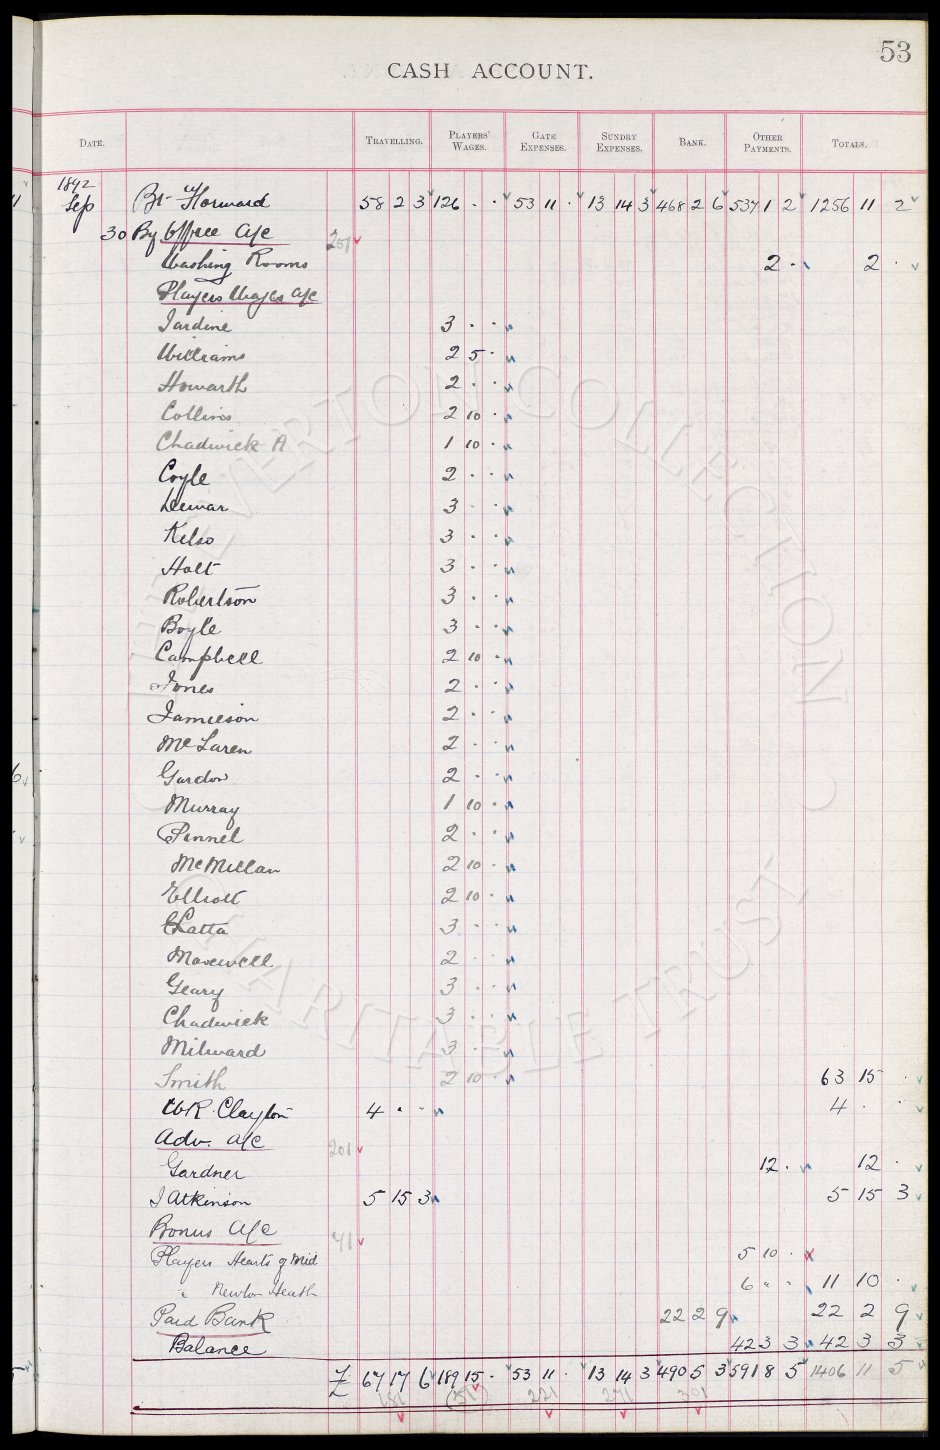 53
CASH ACCOUNT.
DATE. TRAVELLING. PLAYERS' WAGES. GATE EXPENSES. SUNDRY EXPENSES. BANK. OTHER PAYMENTS. TOTALS.
1892
Sep Bt Forward 58 2 3 126 . . 53 11 . 13 14 3 468 2 6 537 1 2 1256 11 2
30 By Office A/c 251
Washing Rooms 2 . 2 .
Players Wages A/c
Jardine 3 . .
Williams 2 5 .
Howarth 2 . .
Collins 2 10 .
Chadwick A 1 10 .
Coyle 2 . .
Dewar 3 . .
Kelso 3 . .
Holt 3 . .
Robertson 3 . .
Boyle 3 . .
Campbell 2 10 .
Jones 2 . .
Jamieson 2 . .
McLaren 2 . .
Gordon 2 . .
Murray 1 10 .
Pinnel 2 . .
McMillan 2 10 .
Elliott 2 10 .
Latta 3 . .
Maxwell 2 . .
Geary 3 . .
Chadwick 3 . .
Milward 3 . .
Smith 2 10 . 63 15 .
W R Clayton 4 . . 4 . .
Adv. A/c 201
Gardner 12 . 12 .
J Atkinson 5 15 3 5 15 3
Bonus A/c 41
Players Hearts of Mid 5 10 .
" Newton Heath 6 " " 11 10 .
Paid Bank 22 2 9 22 2 9
Balance 42 3 3 42 3 3
£ 67 17 6 189 15 . 53 11 . 13 14 3 490 5 3 591 8 5 1406 11 5
181 (51) 221 271 301
THE EVERTON COLLECTION CHARITABLE TRUST